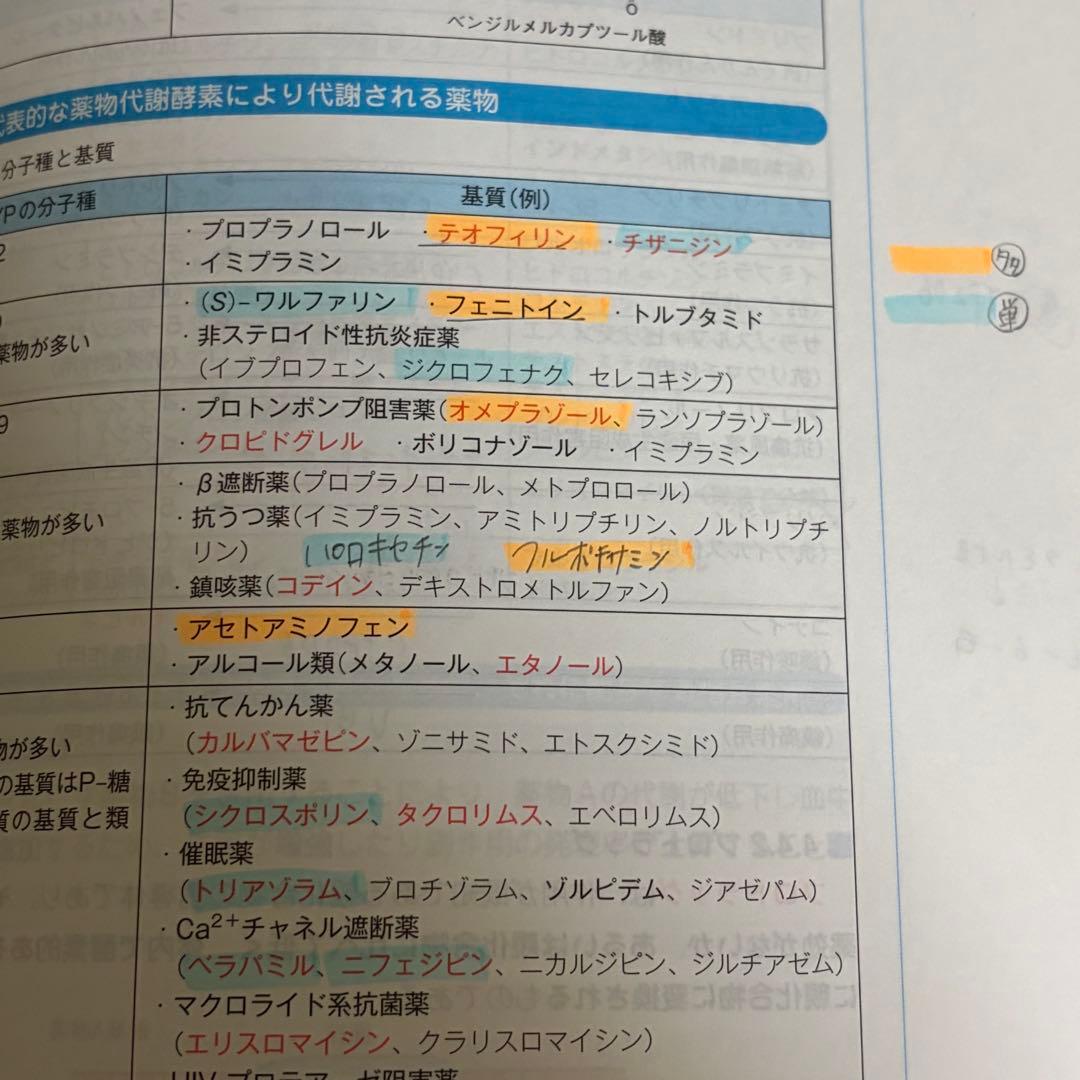 ベンジルメルカプツール酸
代表的な薬物代謝酵素により代謝される薬物
分子種と基質
YPの分子種 基質(例)
2 ・プロプラノロール ・テオフィリン ・チザニジン
・イミプラミン
・(S)-ワルファリン ・フェニトイン ・トルブタミド
薬物が多い ・非ステロイド性抗炎症薬
(イブプロフェン、ジクロフェナク、セレコキシブ)
9 ・プロトンポンプ阻害薬(オメプラゾール、ランソプラゾール)
・クロピドグレル ・ボリコナゾール ・イミプラミン
・β遮断薬(プロプラノロール、メトプロロール)
薬物が多い ・抗うつ薬(イミプラミン、アミトリプチリン、ノルトリプチ
リン) パロキセチン フルボキサミン
・鎮咳薬(コデイン、デキストロメトルファン)
・アセトアミノフェン
・アルコール類(メタノール、エタノール)
・抗てんかん薬
物が多い (カルバマゼピン、ゾニサミド、エトスクシミド)
の基質はP-糖 ・免疫抑制薬
質の基質と類 (シクロスポリン、タクロリムス、エベロリムス)
・催眠薬
(トリアゾラム、ブロチゾラム、ゾルピデム、ジアゼパム)
・Ca2+チャネル遮断薬
(ベラパミル、ニフェジピン、ニカルジピン、ジルチアゼム)
・マクロライド系抗菌薬
(エリスロマイシン、クラリスロマイシン)
HIV プロテアーゼ阻害薬
多
単